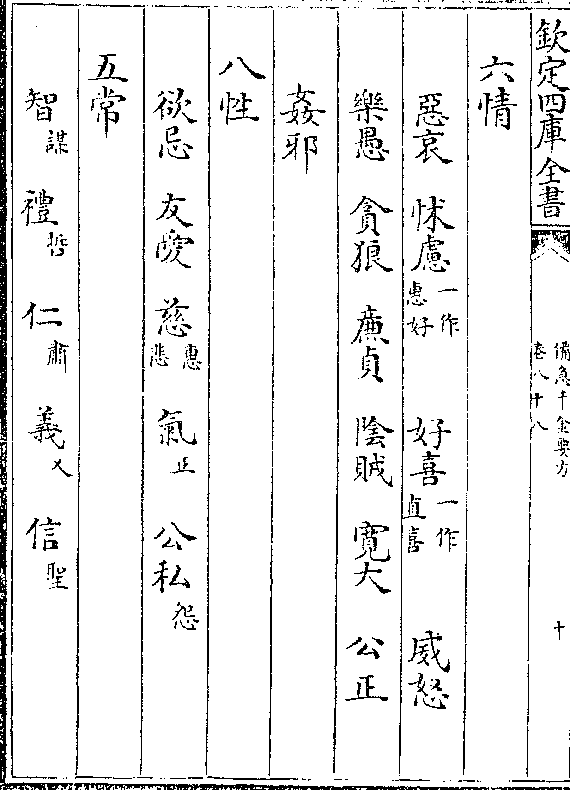 欽定四庫全書
備急千金要方
卷八十八
十
六情
惡哀 怵慮一作惠好 好喜一作直喜 威怒
樂愚 貪狼 廉貞 陰賊 寛大 公正
姦邪
八性
欲忌 友愛 慈惠悲 氣正 公私怨
五常
智謀 禮哲 仁肅 義乂 信聖